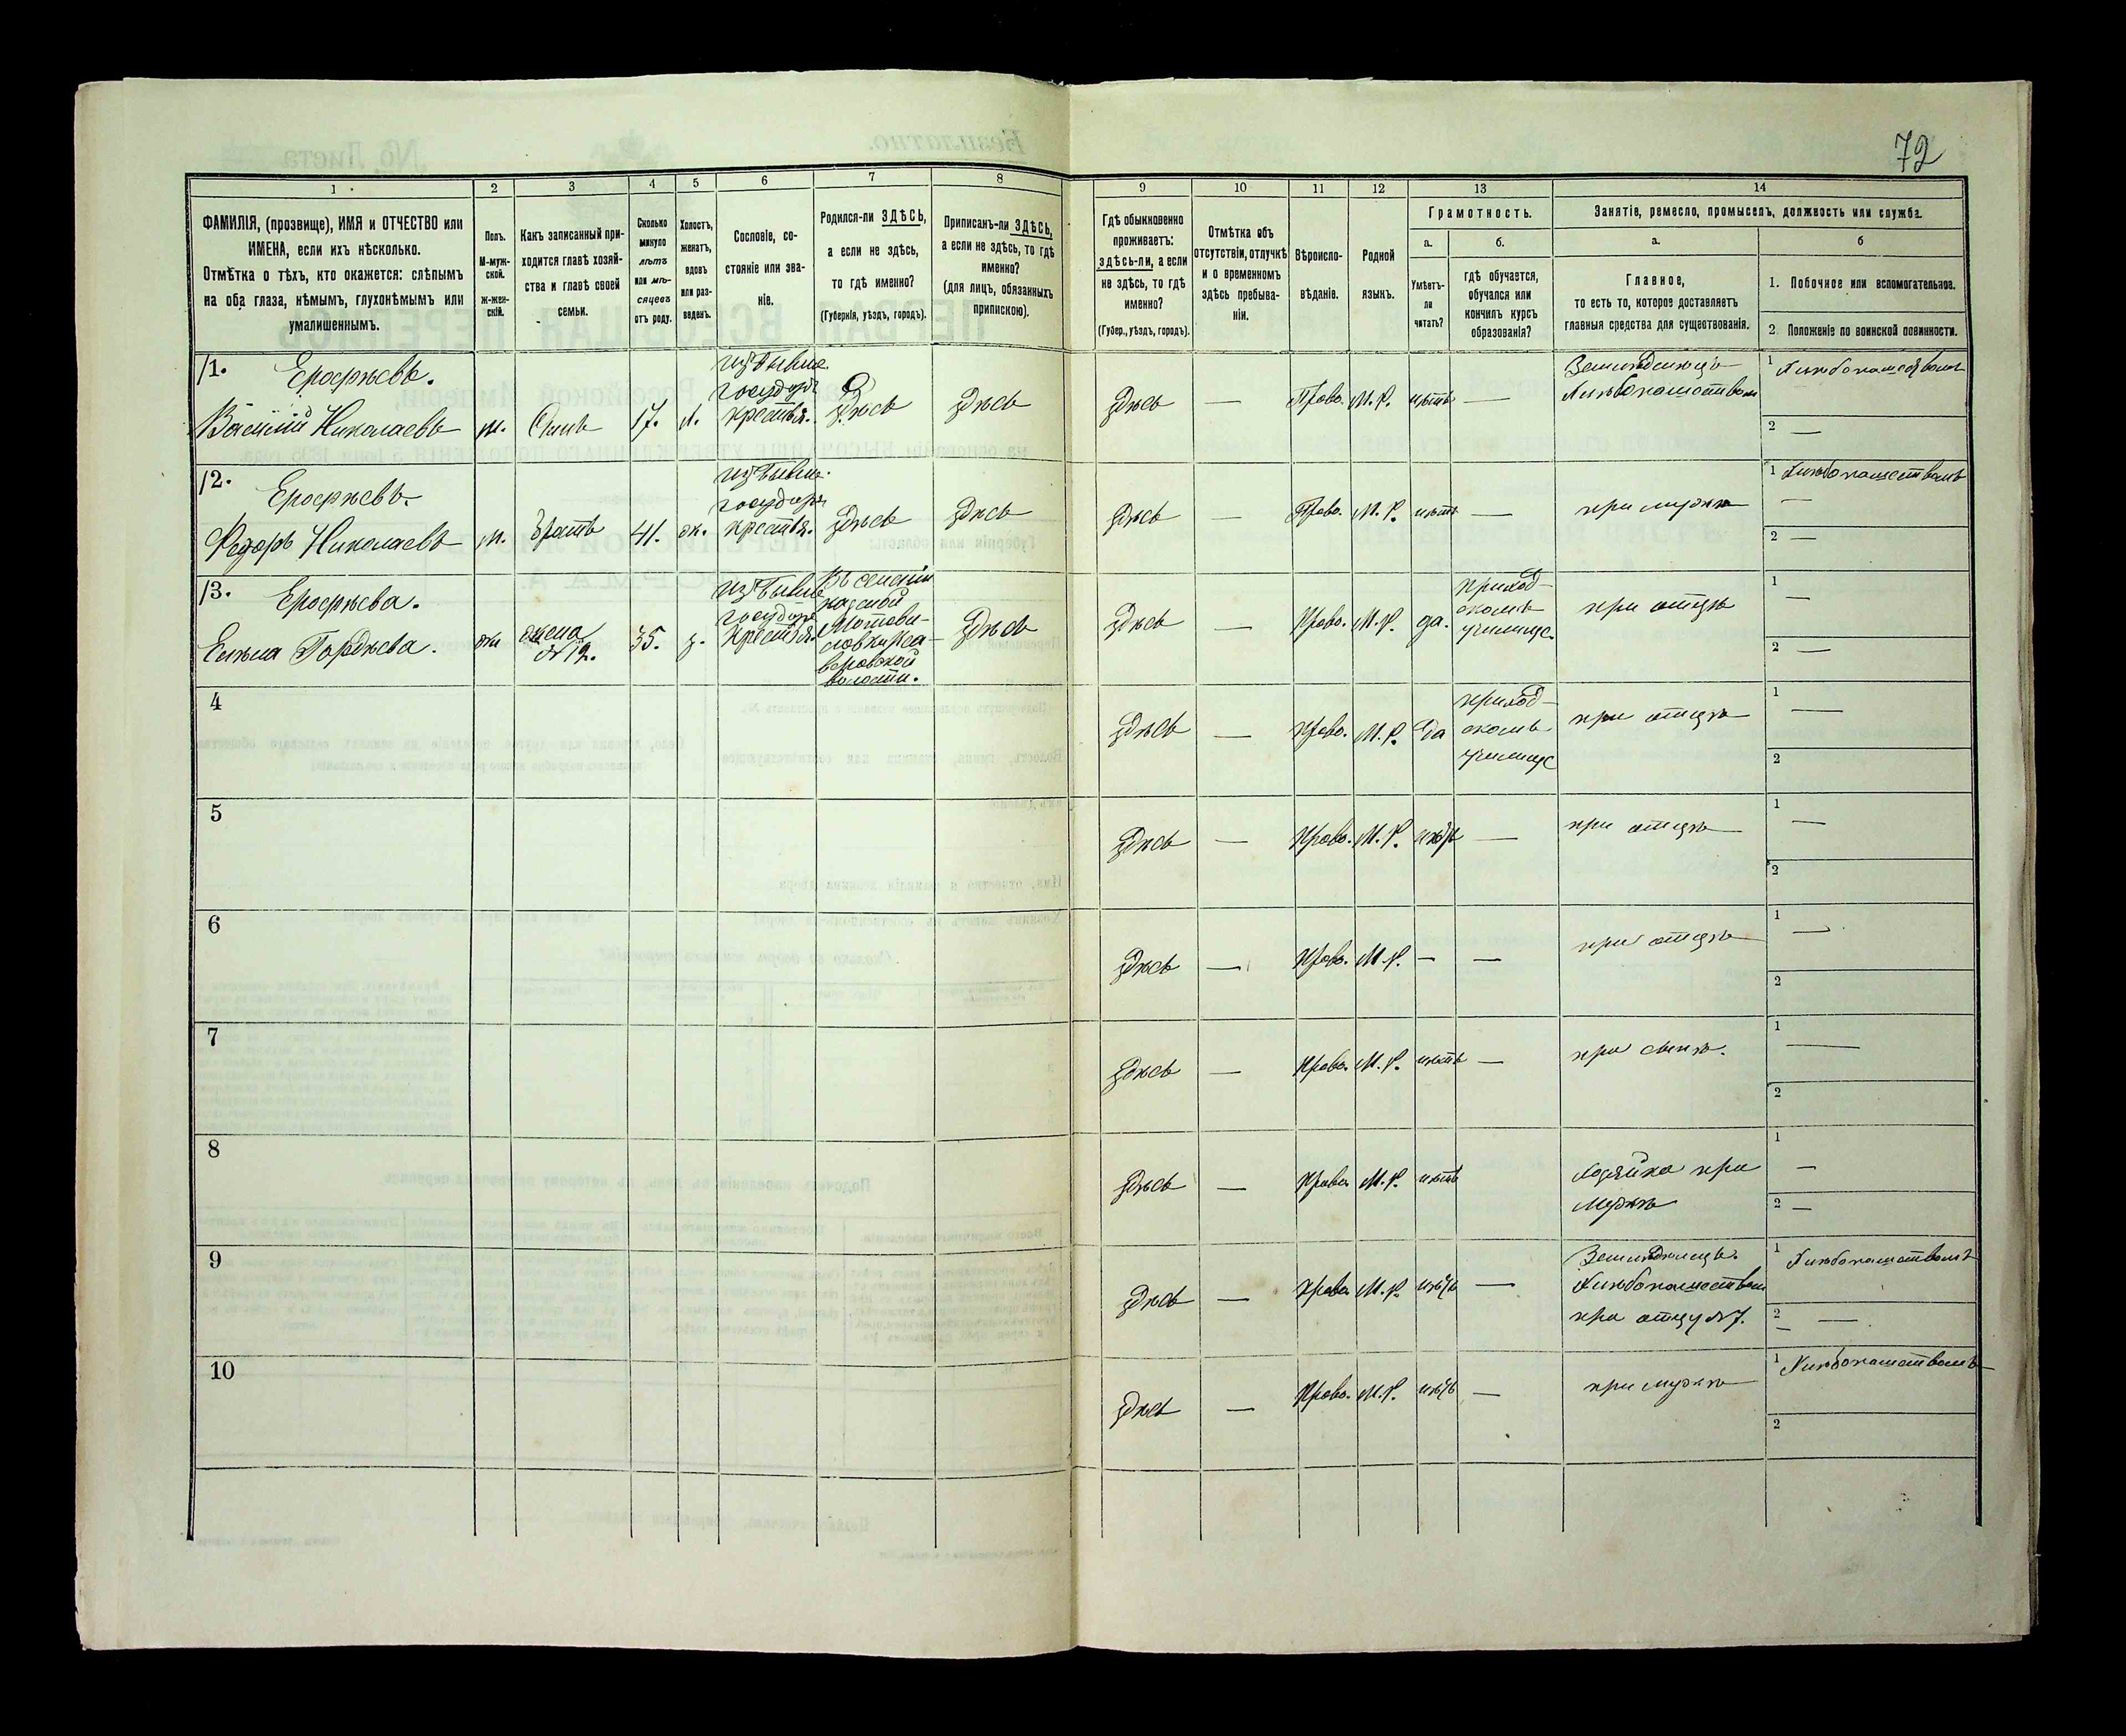 72
1 2 3 4 5 6 7 8 9 10 11 12 13 14
ФАМИЛІЯ, (прозвище), ИМЯ и ОТЧЕСТВО или
ИМЕНА, если ихъ нѣсколько.
Отмѣтка о тѣхъ, кто окажется: слѣпымъ
на оба глаза, нѣмымъ, глухонѣмымъ или
умалишеннымъ.
Полъ.
М-муж-
ской.
ж-жен-
скій.
Какъ записанный при-
ходится главѣ хозяй-
ства и главѣ своей
семьи.
Сколько
минуло
лѣтъ
или мѣ-
сяцевъ
отъ роду.
Холостъ,
женатъ,
вдовъ
или раз-
веденъ.
Сословіе, со-
стояніе или зва-
ніе.
Родился-ли ЗДѢСЬ,
а если не здѣсь,
то гдѣ именно?
(Губернія, уѣздъ, городъ).
Приписанъ-ли ЗДѢСЬ,
а если не здѣсь, то гдѣ
именно?
(для лицъ, обязанныхъ
припискою).
Гдѣ обыкновенно
проживаетъ:
здѣсь-ли, а если
не здѣсь, то гдѣ
именно?
(Губер., уѣздъ, городъ).
Отмѣтка объ
отсутствіи, отлучкѣ
и о временномъ
здѣсь пребыва-
ніи.
Вѣроиспо-
вѣданіе.
Родной
языкъ.
Грамотность.
а.
Умѣетъ-
ли
читать?
б.
гдѣ обучается,
обучался или
кончилъ курсъ
образованія?
Занятіе, ремесло, промыселъ, должность или служба.
а.
Главное,
то есть то, которое доставляетъ
главныя средства для существованія.
б
1. Побочное или вспомогательное.
2. Положеніе по воинской повинности.
11. Ерофѣевъ.
Василій Николаевъ
м.
Сынъ
17.
х.
изъ бывш.
государ.
крестья.
здѣсь
здѣсь
здѣсь
—
Право.
М. Р.
нѣтъ
—
Хлѣбопашеством
1 Хлѣбопашествомъ
2 —
12. Ерофѣевъ.
Федоръ Николаевъ
м.
братъ
41.
ж.
изъ бывш.
государ.
крестья.
здѣсь
здѣсь
здѣсь
—
Право.
М. Р.
нѣтъ
—
при мужѣ
1 Хлѣбопашествомъ
—
2 —
13. Ерофѣева.
Елѣна Гордѣева.
жи
жена
№12.
35.
з.
изъ бывш.
государ.
крестья.
здѣсь
волости.
здѣсь
—
Право.
М. Р.
да.
приход-
скомъ
училище.
при отцѣ
1 —
2 —
4
здѣсь
—
Право.
М. Р.
да
приход-
скомъ
училище
при отцѣ
1 —
2
5
здѣсь
—
Право.
М. Р.
—
при отцѣ
1 —
2
6
здѣсь
—
Право.
М. Р.
—
—
при отцѣ
1 —
2
7
здѣсь
—
Право.
М. Р.
нѣтъ
—
при сынѣ.
1 —
2
8
здѣсь
—
Право
М. Р.
нѣтъ
хозяйка при
мужѣ
1 —
2 —
9
здѣсь
—
Право
М. Р.
нѣтъ
—
Хлѣбопашеством
при отцу №7.
1 Хлѣбопашествомъ
2 —
10
здѣсь
—
Право.
М. Р.
нѣтъ
—
при мужѣ
1 Хлѣбопашествомъ
2